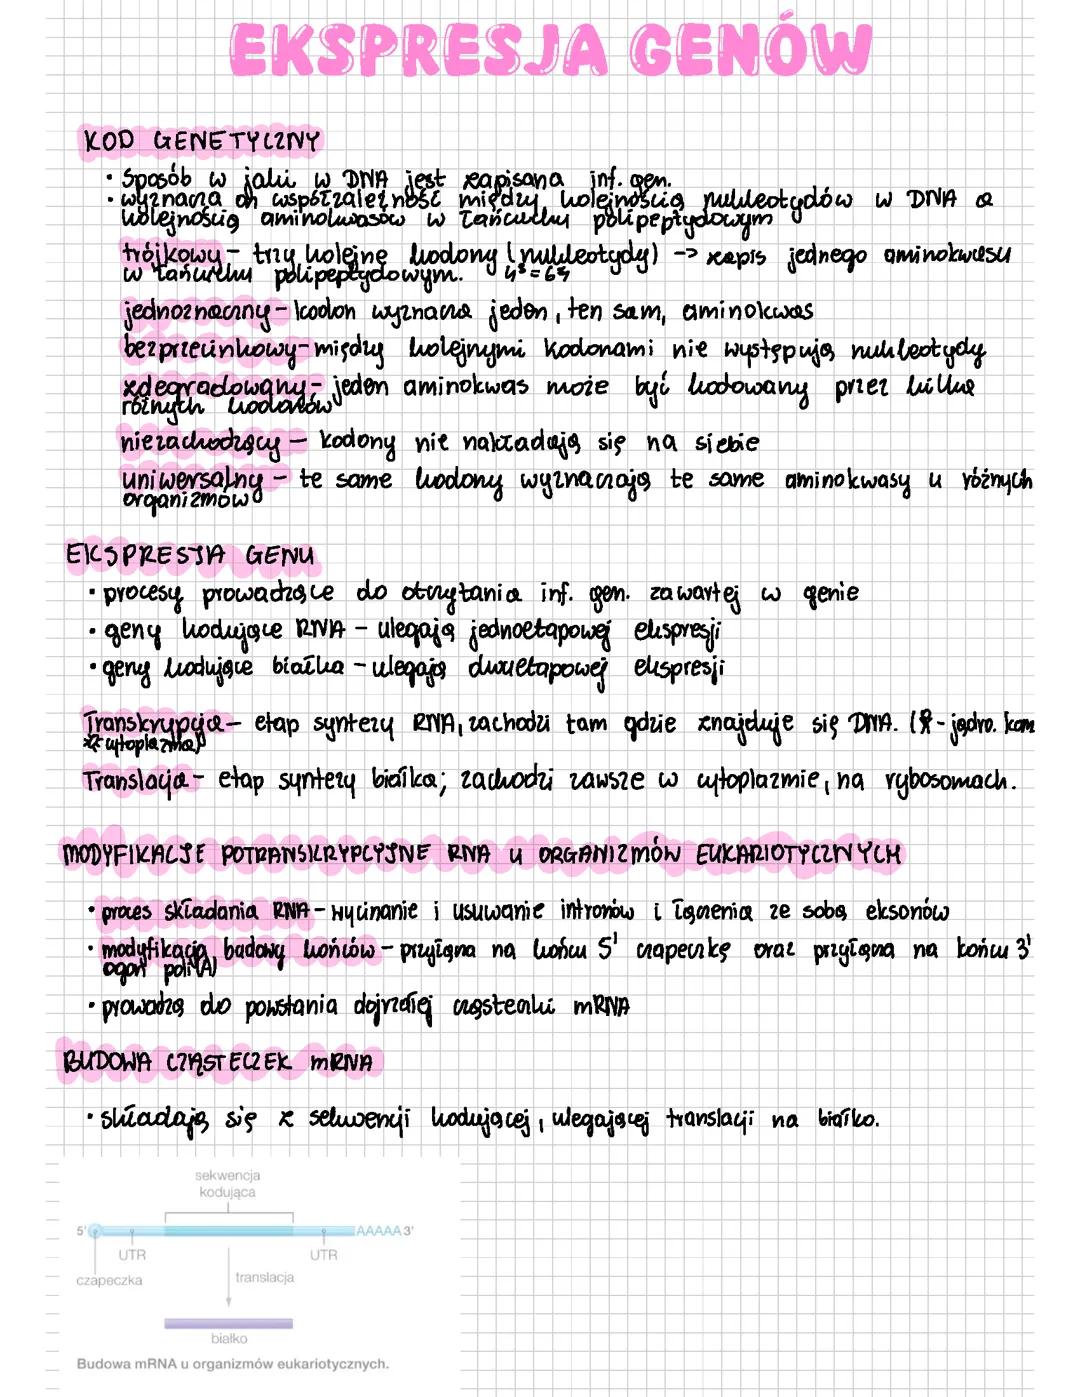 EKSPRESJA GENÓW
KOD GENETYCZNY
• Sposób w jaki w DNA jest zapisana inf. gen.
• wyznacza on współzależność między kolejnością nukleotydów w DNA a
kolejnością aminokwasów w łańcuchu polipeptydowym
trójkowy – trzy kolejne kodony (nukleotydy) -> zapis jednego aminokwasu
w łańcuchu polipeptydowym. 4³ = 64
jednoznaczny – kodon wyznacza jeden, ten sam, aminokwas
bezprzecinkowy – między kolejnymi kodonami nie występują nukleotydy
zdegradowany – jeden aminokwas może być kodowany przez kilka
różnych kodonów
niezachodzący – kodony nie nakładają się na siebie
uniwersalny – te same kodony wyznaczają te same aminokwasy u różnych
organizmów
EKSPRESJA GENU
• procesy prowadzące do otczytania inf. gen. zawartej w genie
• geny kodujące RNA – ulegają jednoetapowej ekspresji
• geny kodujące białka – ulegają dwuetapowej ekspresji
Transkrypcja – etap syntezy RNA, zachodzi tam gdzie znajduje się DNA. ( - jądro. kom
cytoplazma)
Translacja – etap syntezy białka; zachodzi zawsze w cytoplazmie, na rybosomach.
MODYFIKACJE POTRANSKRYPCYJNE RNA U ORGANIZMÓW EUKARIOTYCZNYCH
• proces składania RNA – wycinanie i usuwanie intronów i łączenia ze sobą eksonów
• modyfikacja badowy końców – przyłącza na końcu 5' czapeczkę oraz przyłącza na końcu 3'
ogon poli(A)
• prowadzą do powstania dojrzałej cząsteczki mRNA
BUDOWA CZĄSTECZEK mRNA
• składają się z sekwencji kodującej, ulegającej translacji na białko.
sekwencja
kodująca
5' AAAAA 3'
UTR UTR
czapeczka translacja
białko
Budowa mRNA u organizmów eukariotycznych.